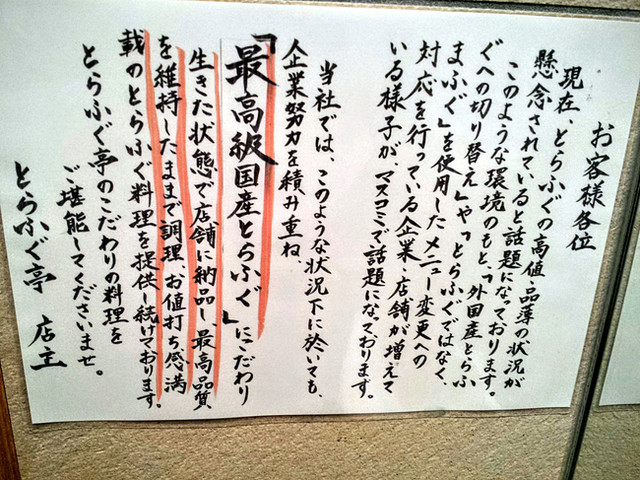 お客様各位
現在、とらふぐの高値・品薄の状況が
懸念されていると話題になっております。
このような環境のもと「外国産とらふ
ぐへの切り替え」や「とらふぐではなく、
まふぐ」を使用したメニュー変更への
対応を行っている企業・店舗が増えて
いる様子が、マスコミで話題になっております。
当社では、このような状況下に於いても、
企業努力を積み重ね、
「最高級国産とらふぐ」にこだわり
生きた状態で店舗に納品し、最高品質
を維持したままで調理、お値打ち感満
載のとらふぐ料理を提供し続けております。
とらふぐ亭のこだわりの料理を
ご堪能してくださいませ。
とらふぐ亭 店主